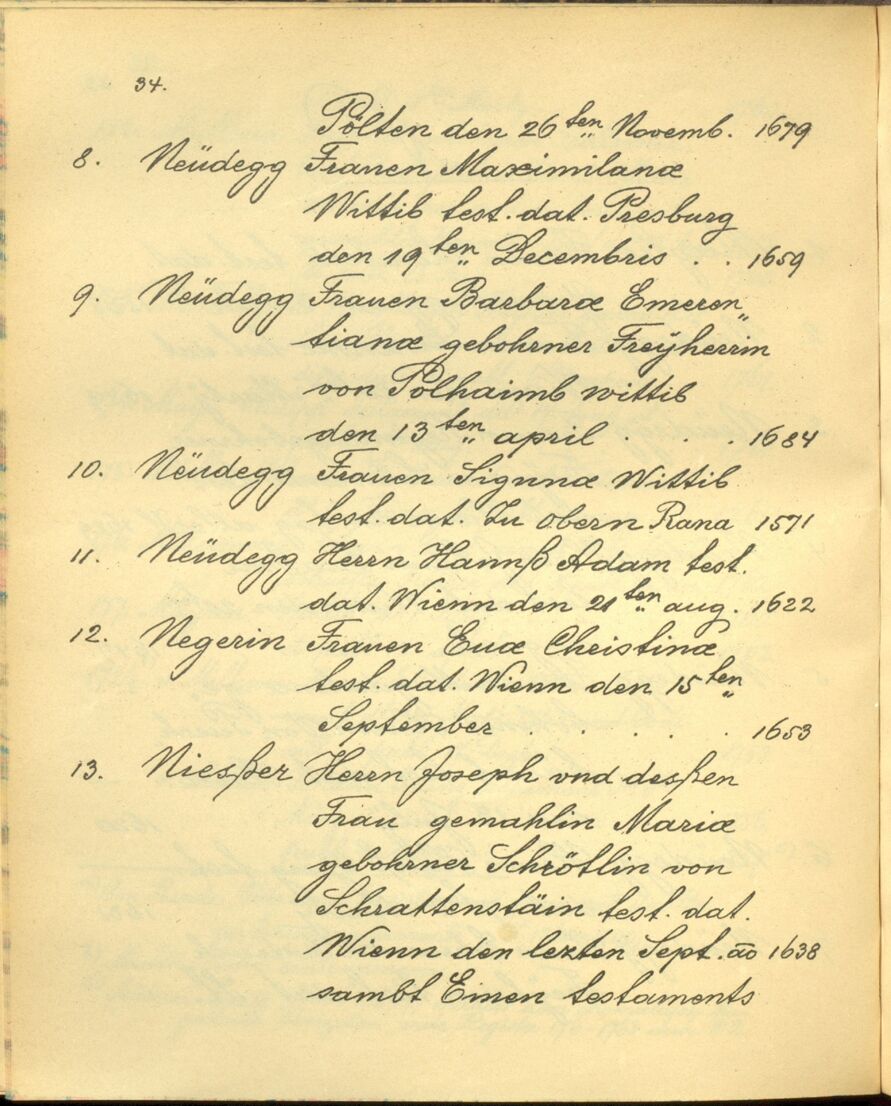 34.
Pölten den 26ten Novemb. 1679
8. Neüdegg Frauen Maximilianæ
Wittib test. dat. Presburg
den 19ten Decembris . . 1659
9. Neüdegg Frauen Barbaræ Emeren„
tianæ gebohrner Freÿherrin
von Polhaimb wittib
den 13ten april . . . 1684
10. Neüdegg Frauen Signnæ Wittib
test. dat. Zu obern Rana 1571
11. Neüdegg Herrn Hannß Adam test.
dat. Wienn den 21ten aug. 1622
12. Negerin Frauen Euæ Christinæ
test. dat. Wienn den 15ten
September . . . . . 1653
13. Niesßer Herrn Joseph vnd desßen
Frau gemahlin Mariæ
gebohrner Schrötlin von
Schrattenstäin test. dat.
Wienn den lezten Sept. āo 1638
sambt Einen testaments